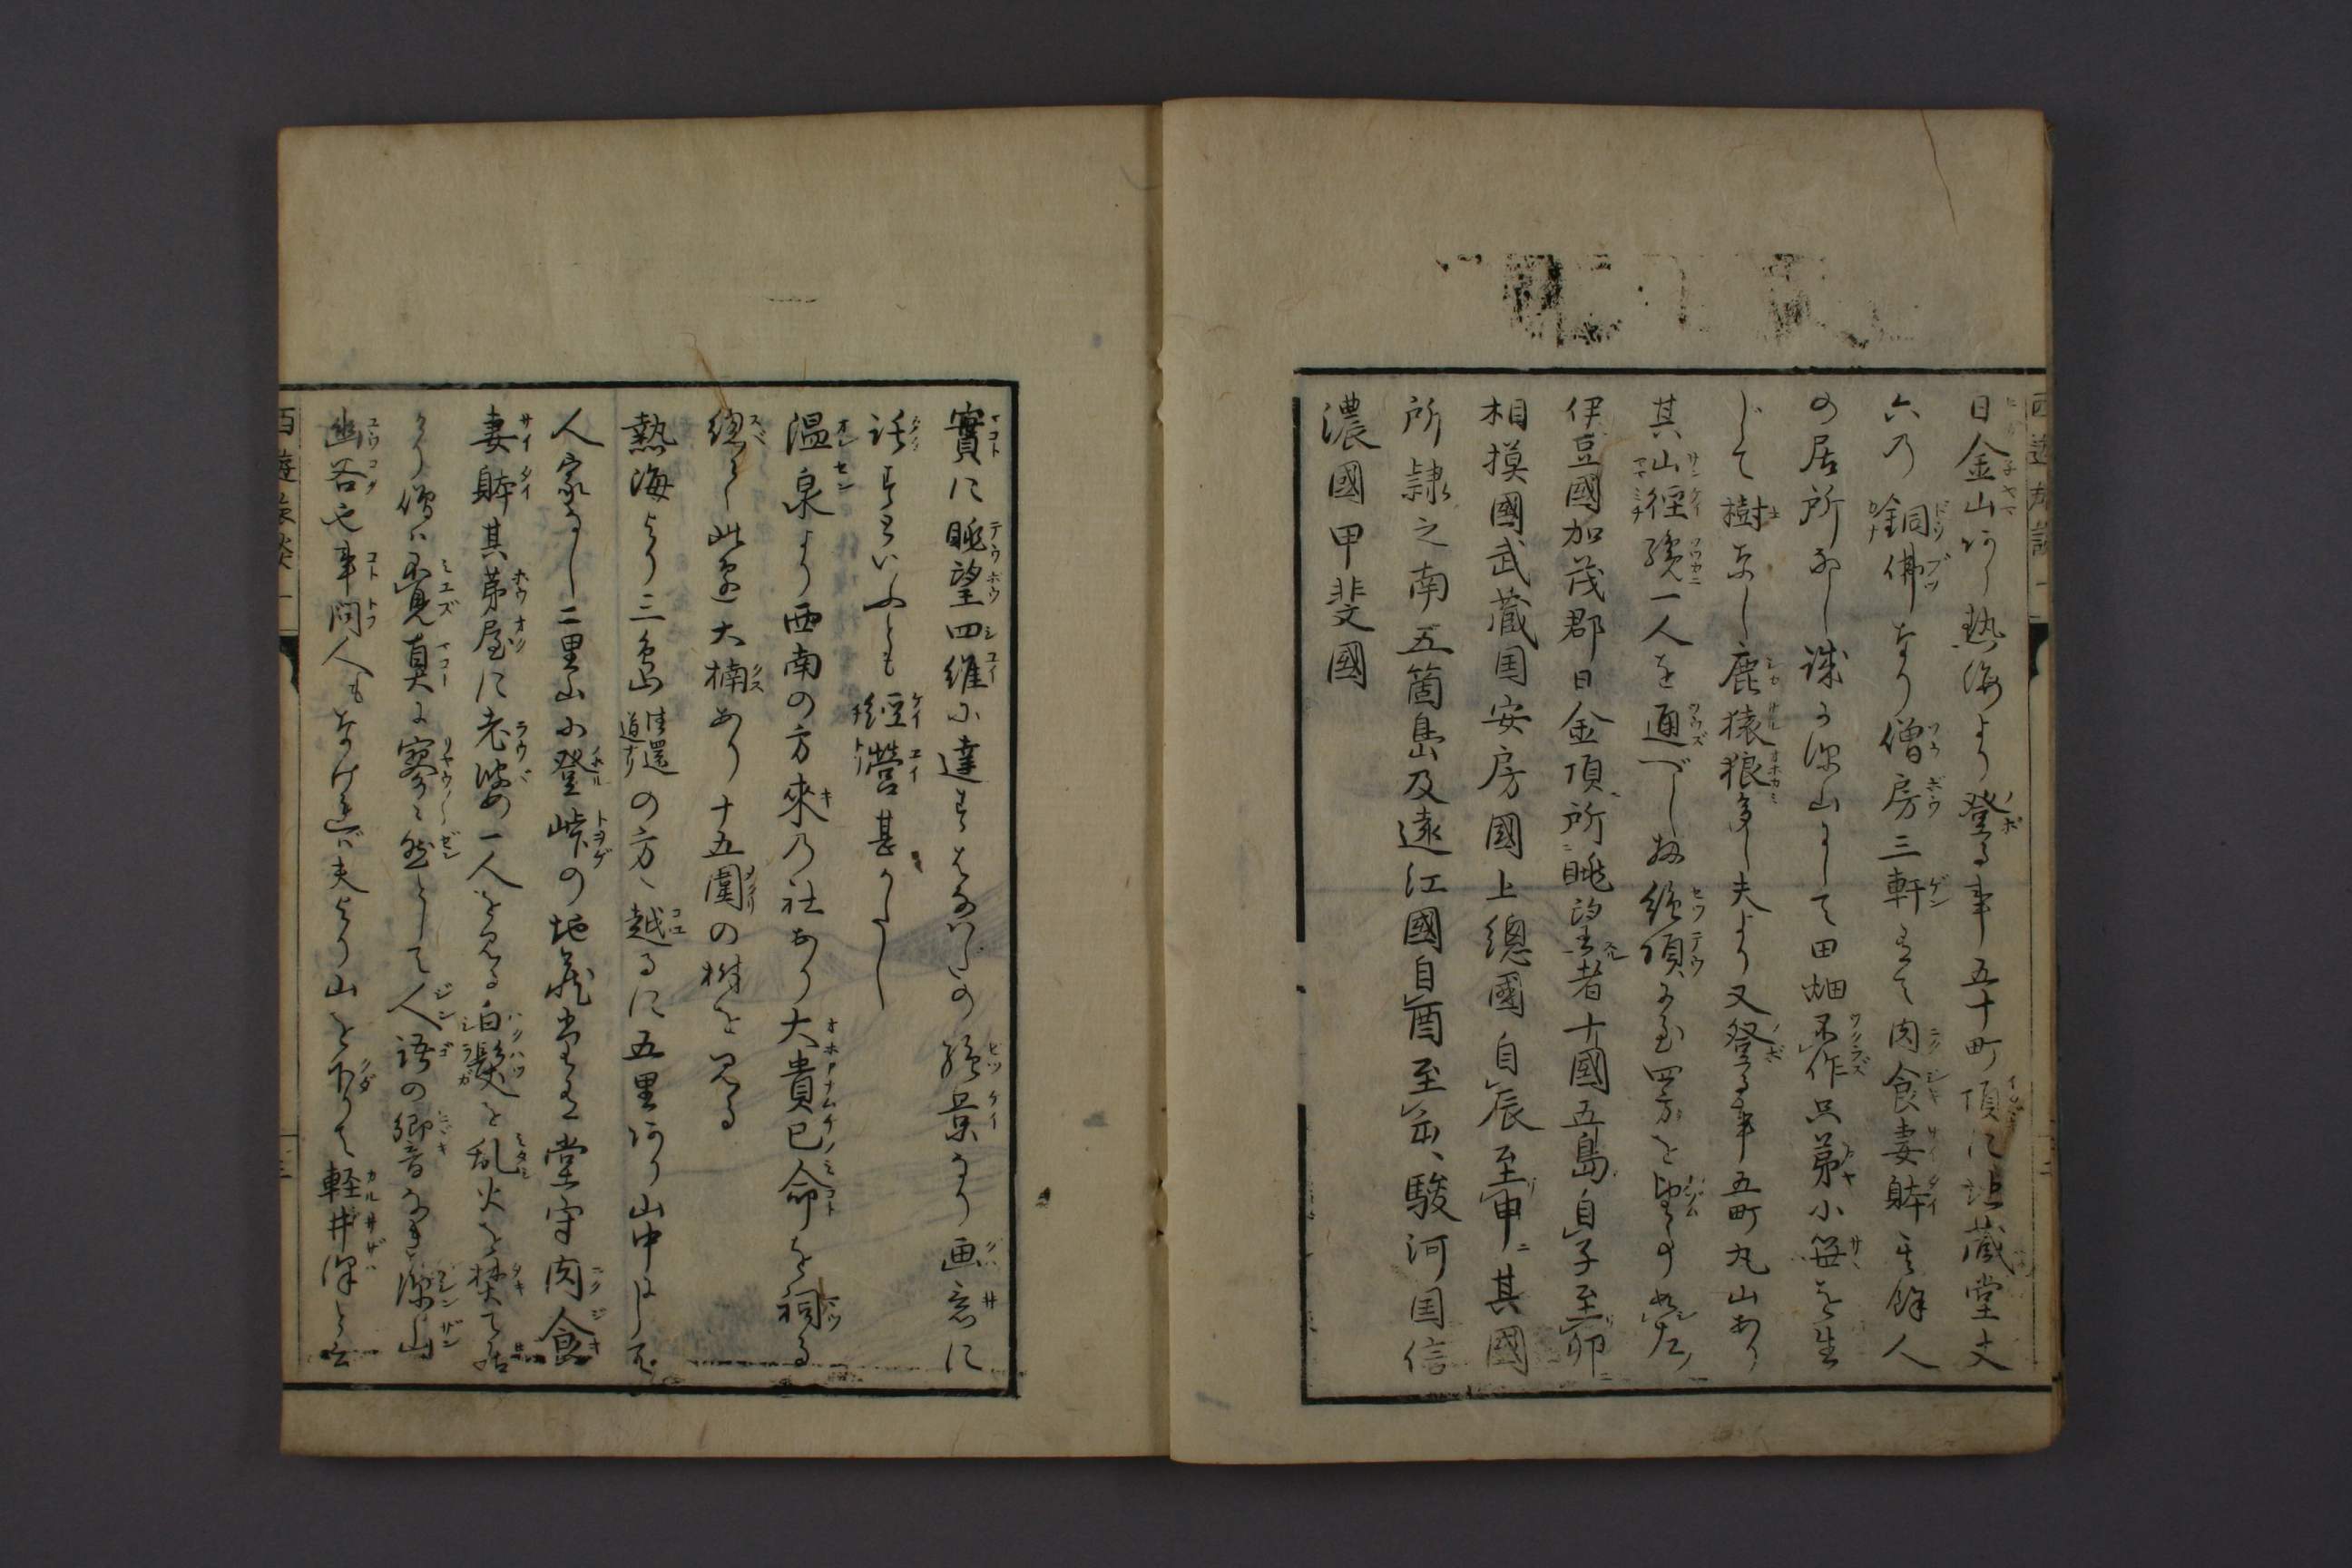 日金山あり熱海より登る事五十町頂に地蔵堂丈
六の銅佛なり僧房三軒ありて肉食妻躰其餘人
の居所なし誠に深山にして田畑不作只茅小笹を生
じて樹なし鹿猿狼多し夫より又登る事五町丸山あり
其山徑纔一人を通べし扨絶頂に至四方を望の必左ノ
伊豆國加茂郡日金頂所眺望者十國五島自子至卯
相摸國武蔵国安房國上總國自辰至申其國
所隷之南五箇島及遠江國自酉至亥駿河国信
濃國甲斐國
實に眺望四維に達す
絶景なり画意に
話すといふとも經營甚かたし
温泉より西南の方來乃社あり大貴己命を祠る
總て此邊大楠あり十五圍の樹を見る
熱海より三島往還道ナリの方へ越るに五里あり山中にして
人家なし二里山に登峠の地蔵堂有堂守肉食
妻躰其茅屋に老婆一人を見る白髮を乱火を焚て居
たり僧は不見真に寥々然として人語の郷音なき深山
幽谷也事問人もなければ夫より山を下りて軽井澤と云
西遊旅談 一